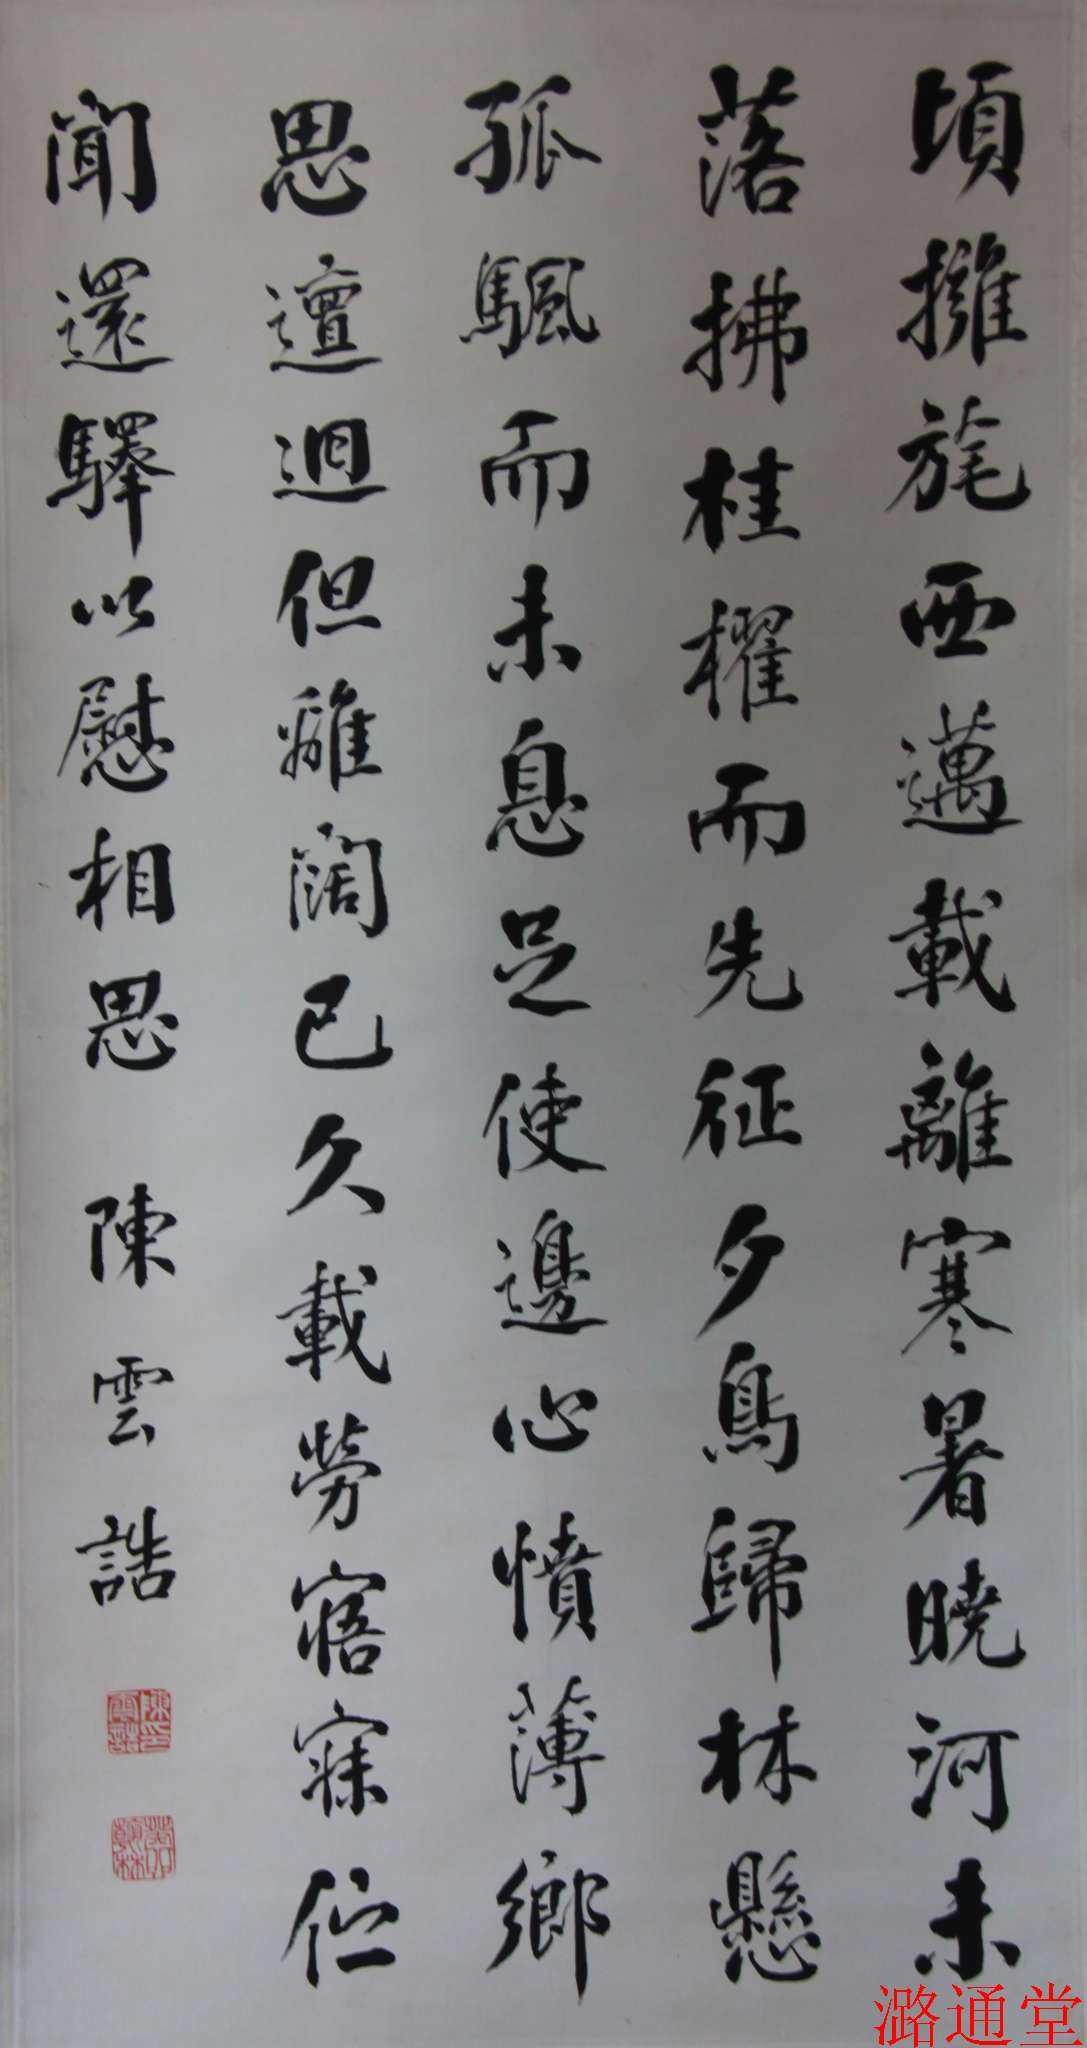 頃擁旄西邁載離寒暑曉河未
落拂桂櫂而先征夕鳥歸林懸
孤颿而未息足使邊心憤薄鄉
思邅迴但離闊已久載勞寤寐佇
聞還驛以慰相思
陳雲誥
陳雲誥印
潞通堂